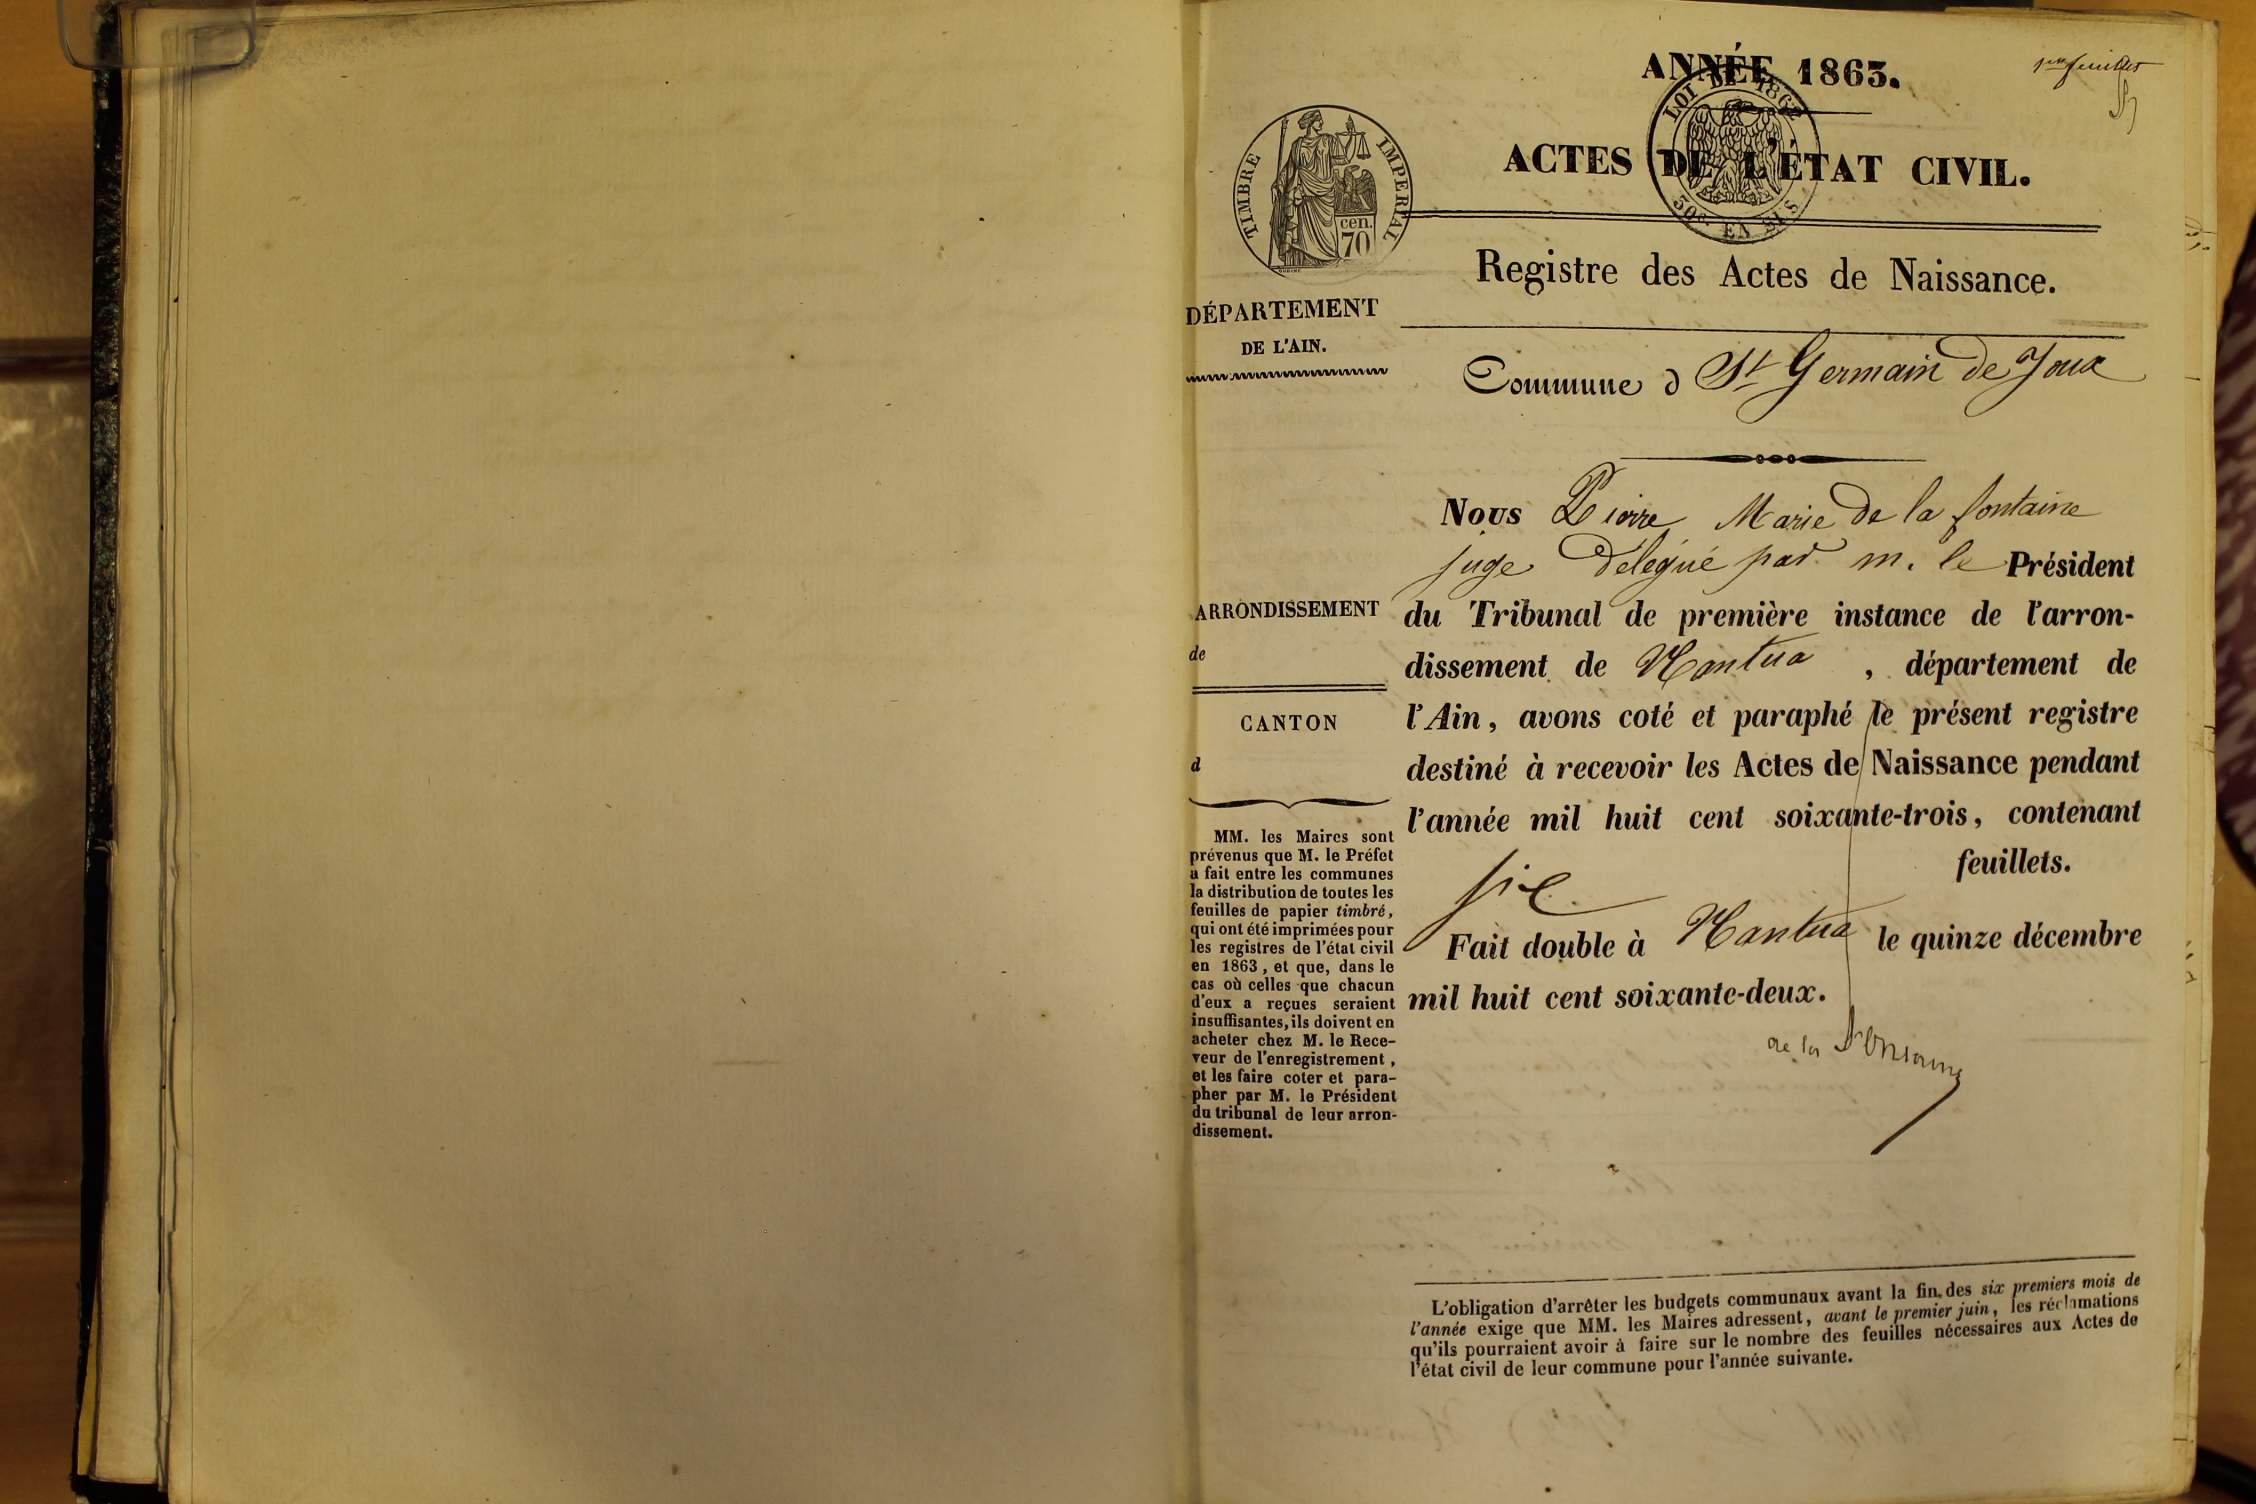 ANNÉE 1863.
1er feuillet
LOI DE 1862
50c. EN SUS
TIMBRE IMPERIAL
cen.
70
ACTES DE L'ÉTAT CIVIL.
Registre des Actes de Naissance.
DÉPARTEMENT
DE L'AIN.
Commune d St Germain de Joux
ARRONDISSEMENT
de
CANTON
d
MM. les Maires sont
prévenus que M. le Préfet
a fait entre les communes
la distribution de toutes les
feuilles de papier timbré,
qui ont été imprimées pour
les registres de l'état civil
en 1863, et que, dans le
cas où celles que chacun
d'eux a reçues seraient
insuffisantes, ils doivent en
acheter chez M. le Rece-
veur de l'enregistrement,
et les faire coter et para-
pher par M. le Président
du tribunal de leur arron-
dissement.
Nous Pierre Marie de la fontaine
juge délégué par m. le Président
du Tribunal de première instance de l'arron-
dissement de Nantua, département de
l'Ain, avons coté et paraphé le présent registre
destiné à recevoir les Actes de Naissance pendant
l'année mil huit cent soixante-trois, contenant
six feuillets.
Fait double à Nantua le quinze décembre
mil huit cent soixante-deux.
de la Fontaine
L'obligation d'arrêter les budgets communaux avant la fin des six premiers mois de
l'année exige que MM. les Maires adressent, avant le premier juin, les réclamations
qu'ils pourraient avoir à faire sur le nombre des feuilles nécessaires aux Actes de
l'état civil de leur commune pour l'année suivante.